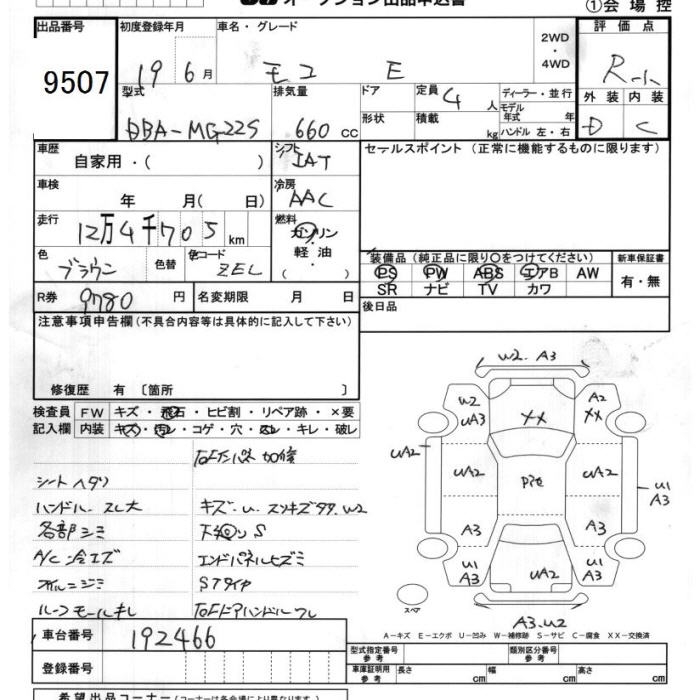 オークション出品申込書
①会場控
出品番号
9507
初度登録年月
19 6月
車名・グレード
モコ E
2WD
・
4WD
評価点
R
外装 内装
D C
型式
DBA-MG22S
排気量
660 cc
ドア
形状
定員 4 人
積載 kg
ディーラー・並行
モデル年式 年
ハンドル 左・右
車歴
自家用・( )
シフト
IAT
セールスポイント(正常に機能するものに限ります)
車検
年 月( 日)
冷房
AAC
走行
12万4千705 km
燃料
ガソリン
軽油
・( )
色
ブラウン
色替
色コード
ZEL
装備品(純正品に限り○をつけてください)
PS PW ABS エアB AW
SR ナビ TV カワ
新車保証書
有・無
R券
9780 円
名変期限 月 日
後日品
注意事項申告欄(不具合内容等は具体的に記入して下さい)
修復歴 有〔箇所 〕
検査員
記入欄
FW キズ・飛石・ヒビ割・リペア跡・×要
内装 キズ・汚レ・コゲ・穴・スレ・キレ・破レ
シートヘタリ
ハンドルスレ大
キズ・U・スリキズ多々W2
各部シミ
下廻りS
A/C冷エズ
エンドパネルヒズミ
Sタイヤ
ルーフモールキレ
右Fドアハンドルワレ
W2. A3
W2
UA3
XX
A2
XX
UA2
UA2
UA2
U1
A3
A3
A3
U1
A3
UA2
U1
A3
スペア
A3.W2
A-キズ E-エクボ U-凹み W-補修跡 S-サビ C-腐食 XX-交換済
車台番号
192466
登録番号
型式指定番号
参考
類別区分番号
参考
車庫証明用
参考
長さ cm
幅 cm
高さ cm
希望出品コーナー(コーナーは各会場により異なります)